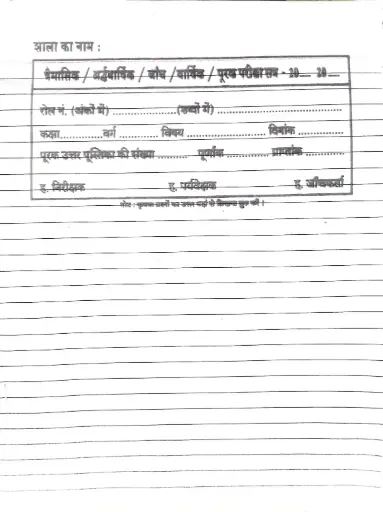 शाला का नाम :
त्रैमासिक / अर्द्धवार्षिक / जाँच / वार्षिक / पूरक परीक्षा सत्र - 20 __ 20 __
रोल नं. (अंकों में) .................... (शब्दों में) ....................................
कक्षा ............ वर्ग ............ विषय ........................ दिनांक .............
पूरक उत्तर पुस्तिका की संख्या ......... पूर्णांक ............. प्राप्तांक ...........
ह. निरीक्षक ह. पर्यवेक्षक ह. जाँचकर्ता
नोट : कृपया प्रश्नों का उत्तर यहाँ से लिखना शुरू करें ।